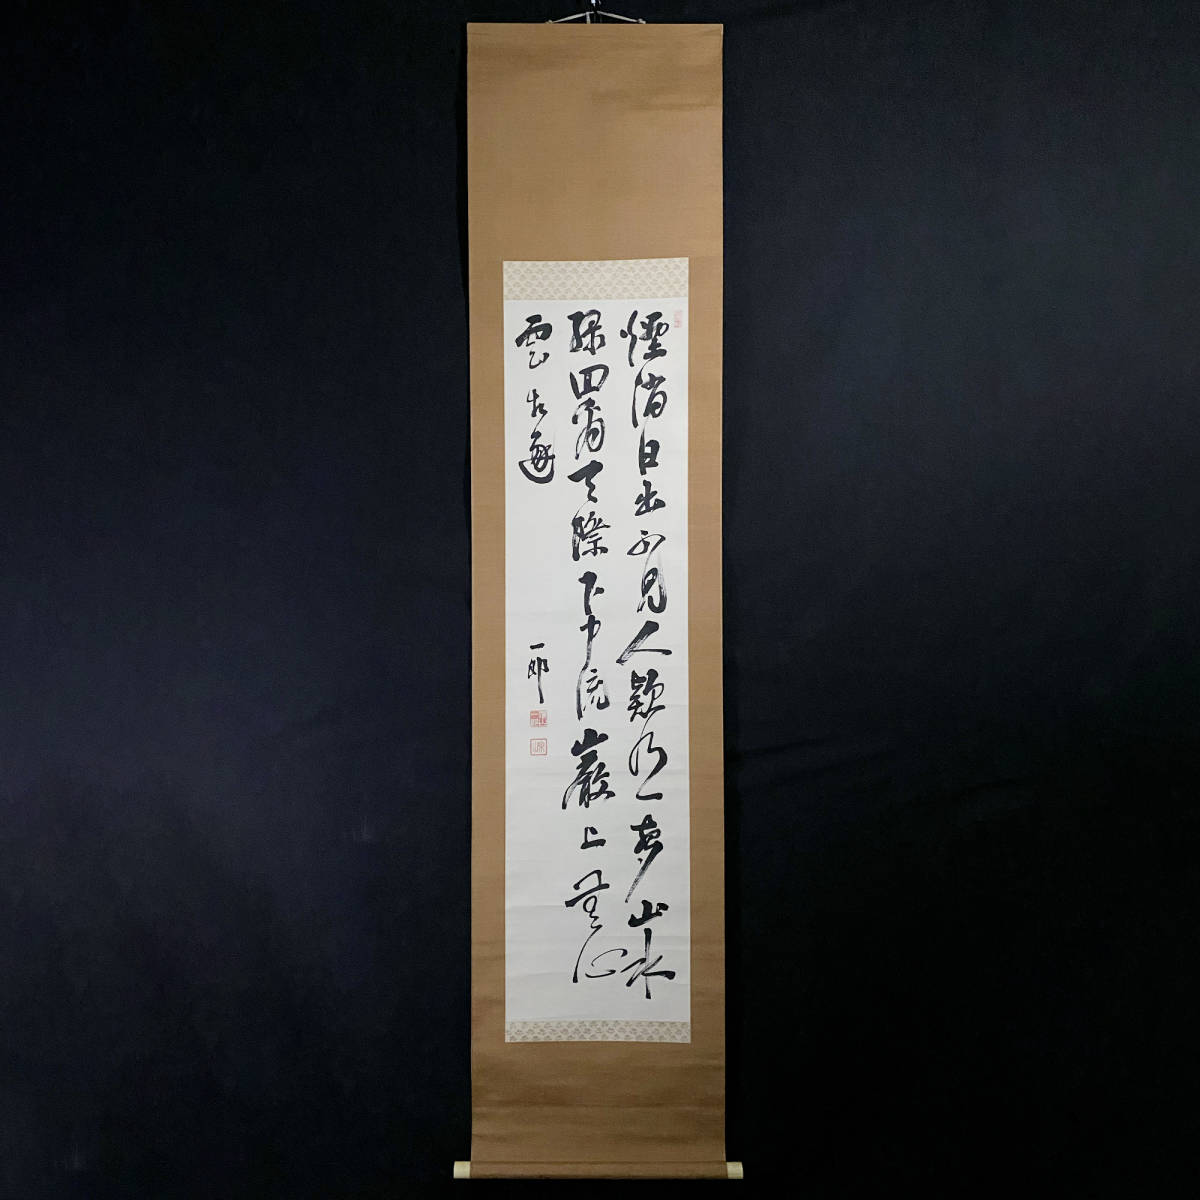 煙消日出不見人欸乃一声山水
緑回看天際下中流巌上無心
雲相逐
一郎